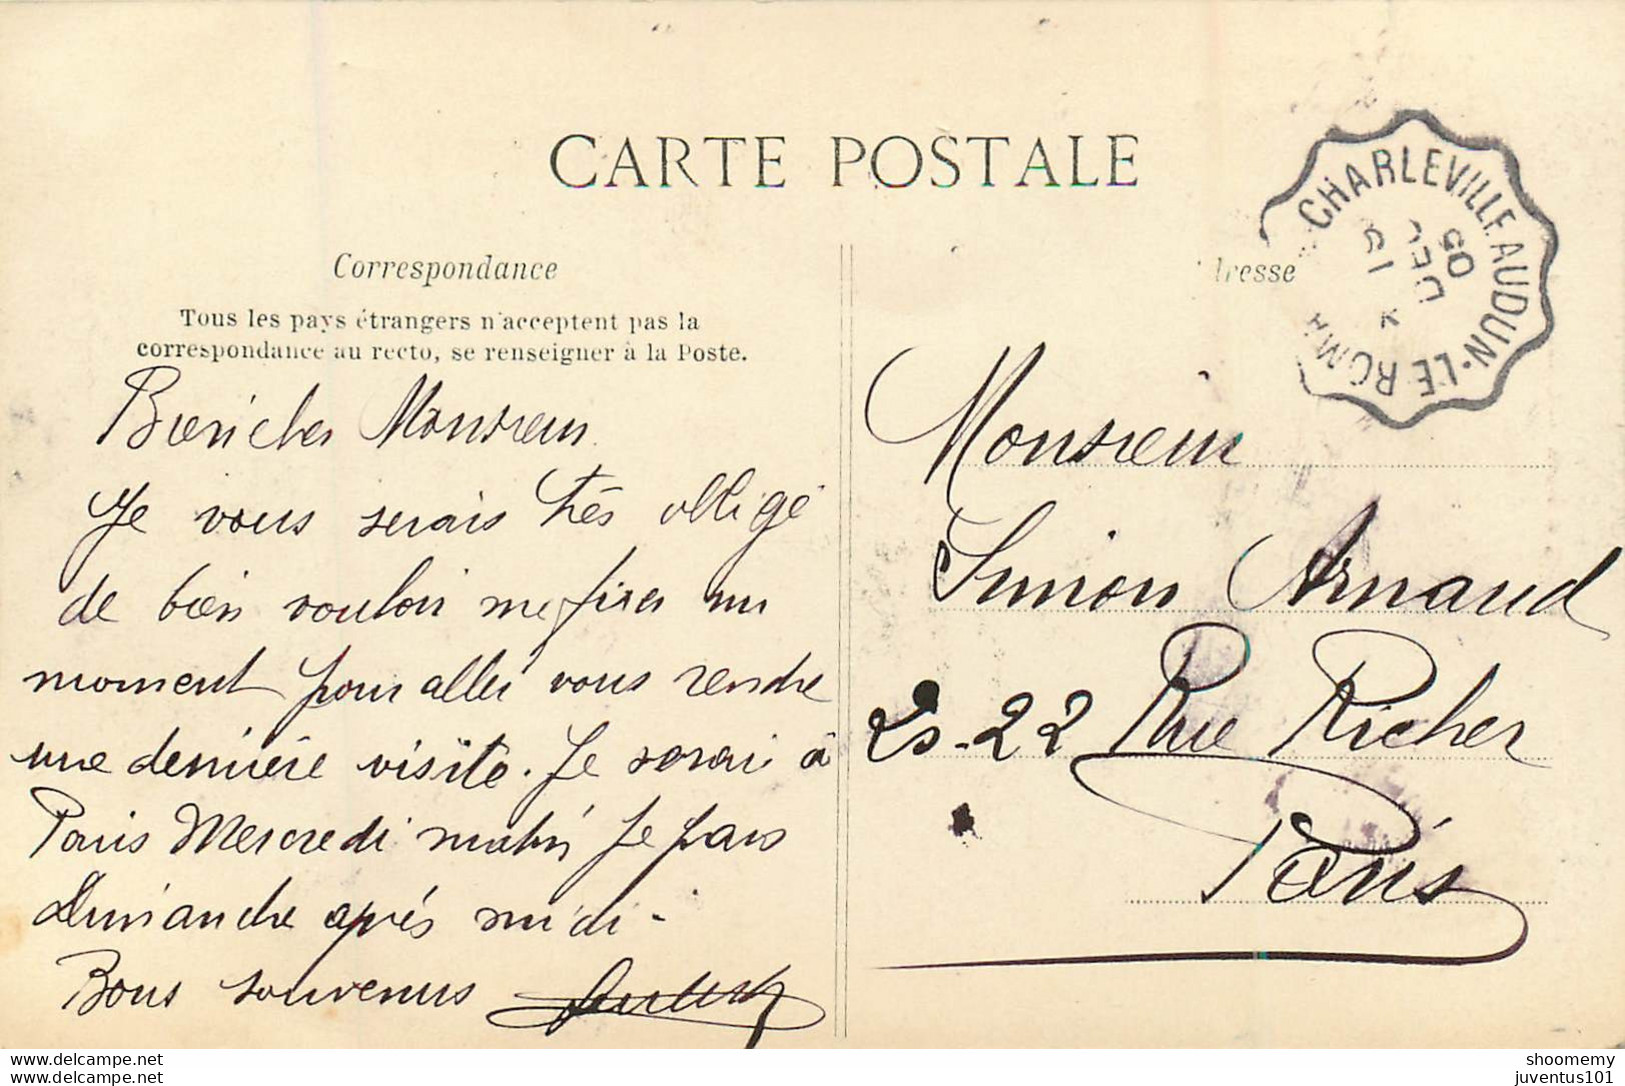 CARTE POSTALE
Correspondance
Tous les pays étrangers n'acceptent pas la
correspondance au recto, se renseigner à la Poste.
Bien cher Monsieur
Je vous serais très obligé
de bien vouloir me fixer un
moment pour aller vous rendre
une dernière visite. Je serai à
Paris Mercredi matin Je pars
Dimanche après midi -
Bons souvenirs
CHARLEVILLE AUDUN-LE ROMA
15
DEC
05
dresse
Monsieur
Simon Arnaud
20-22 Rue Richer
Paris
www.delcampe.net
www.delcampe.net
shoomemy
juventus101